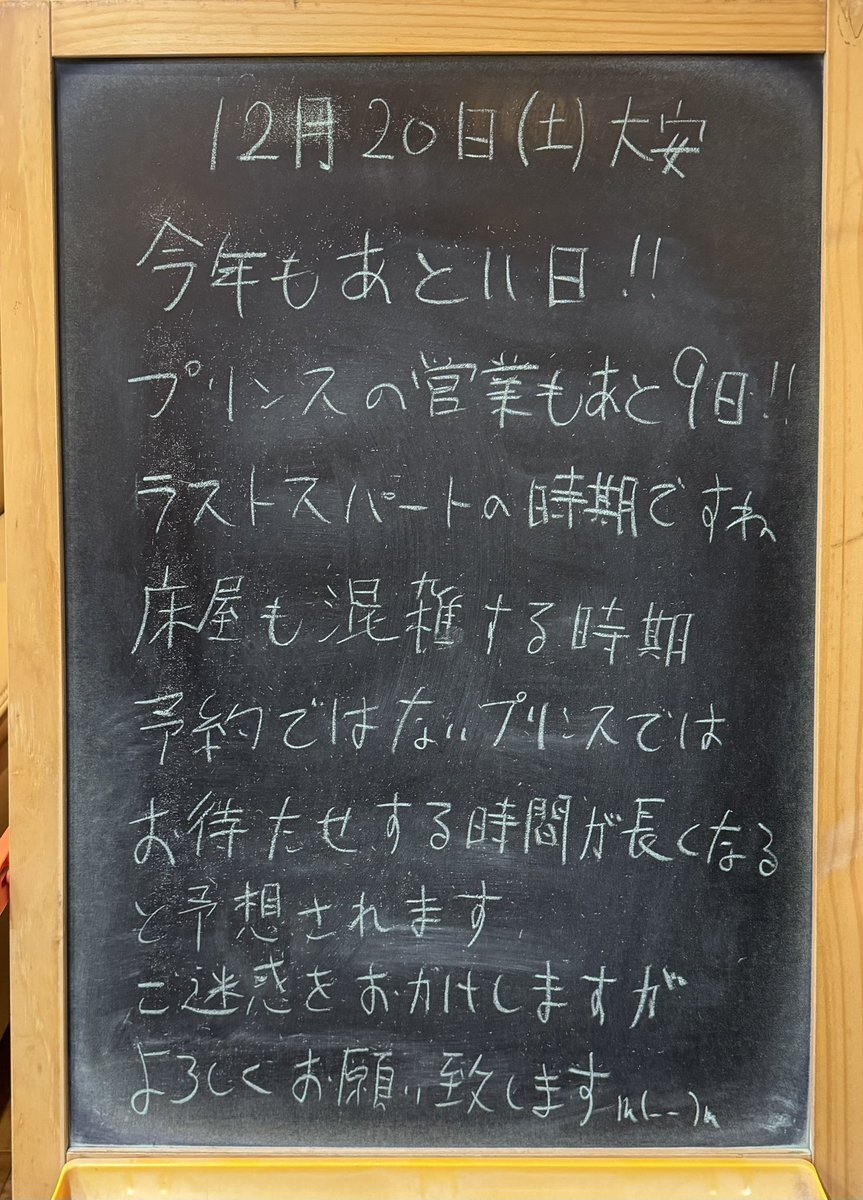 12月20日(土)大安
今年もあと11日!!
プリンスの営業もあと9日!!
ラストスパートの時期ですね
床屋も混雑する時期
予約ではないプリンスでは
お待たせする時間が長くなる
と予想されます
ご迷惑をおかけしますが
よろしくお願い致しますm(__)m